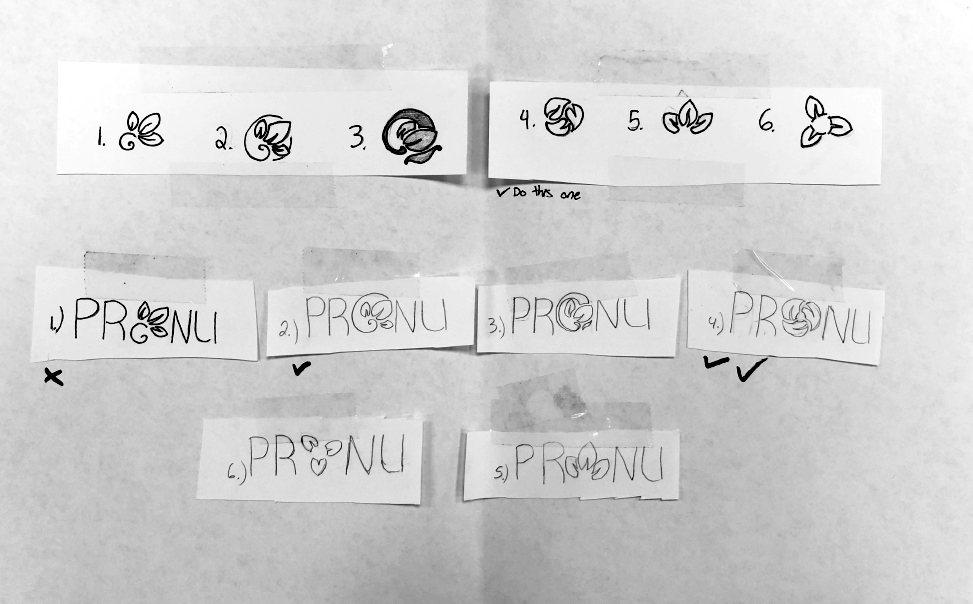 1.
2.
3.
4.
5.
6.
✓ Do this one
1.) PR NU
2.) PR NU
3.) PR NU
4.) PR NU
6.) PR NU
5.) PR NU